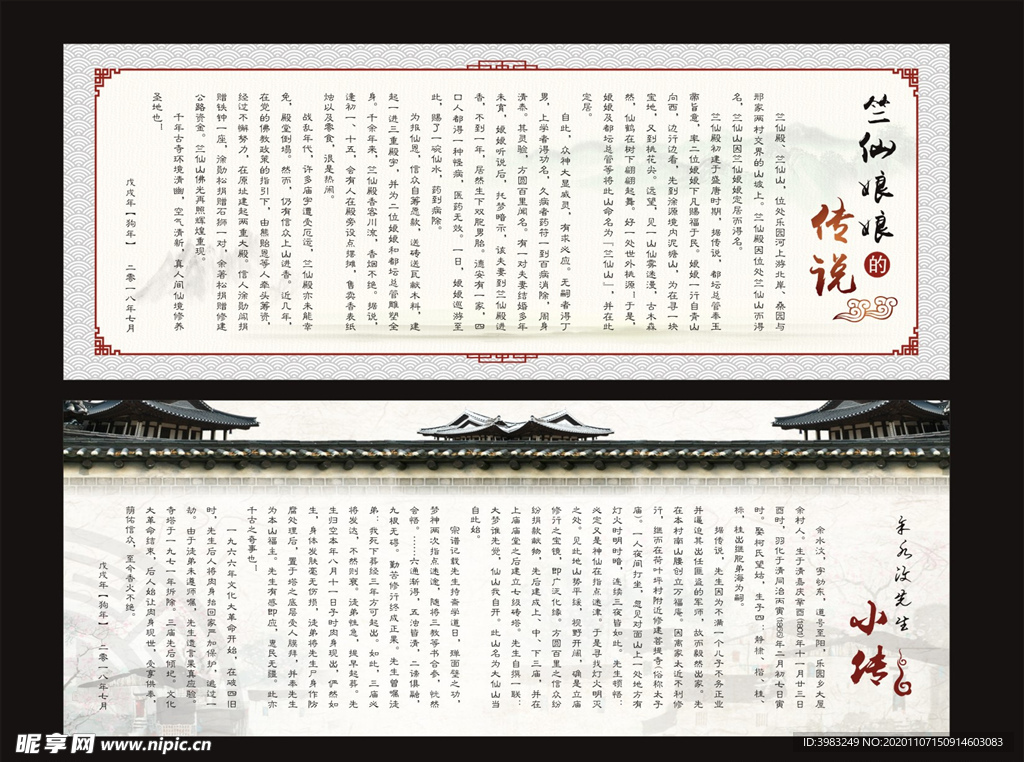 竺仙娘娘的
传说
竺仙殿、竺仙山，位处乐园河上游北岸、桑园与
邢家两村交界的山坡上。竺仙殿因位处竺仙山而得
名，竺仙山因竺仙娘娘定居而得名。
竺仙殿初建于盛唐时期，据传说，都坛总管奉玉
帝旨意，率二位娘娘下凡赐福于民。娘娘一行自青山
向西，边行边看，先到涂源境内泥塘山，为在寻一块
宝地，又到桃花尖。远望，见一山仙雾迷漫，古木森
然，仙鹤在树下翩翩起舞。好一处世外桃源！于是，
娘娘及都坛总管等将此山命名为「竺仙山」，并在此
定居。
自此，众神大显威灵，有求必应。无嗣者得丁
男，上学者得功名，久病者药符一到百病消除，周身
清泰。其灵验，方圆百里闻名。有一对夫妻结婚多年
未育，娘娘听说后，托梦暗示，该夫妻到竺仙殿进
香，不到一年，居然生下双胞男胎。德安有一家，四
口人都得一种怪病，医药无效。一日，娘娘巡游至
此，赐了一碗仙水，药到病除。
为报仙恩，信众自筹悬款，送砖送瓦献木料，建
起一进三重殿宇，并为二位娘娘和都坛总管雕塑全
身。千余年来，竺仙殿香客川流，香烟不绝。据说，
逢初一、十五，会有人在殿旁设点摆摊，售卖香表纸
烛以及零食，很是热闹。
战乱年代，许多庙宇遭受厄运，竺仙殿亦未能幸
免，殿堂倒塌。然而，仍有信众上山进香。近几年，
在党的佛教政策的指引下，由熊贻恩等人牵头筹资，
经过不懈努力，在原址建起两重大殿。信人涂勋阔捐
赠铁钟一座，涂勋松捐赠石狮一对，余著松捐赠修建
公路资金。竺仙山佛光再照辉煌重现。
千年古寺环境清幽，空气清新，真人间仙境修养
圣地也！
戊戌年【狗年】 二零一八年七月
余水汶先生
小传
余水汶，字勃东，道号至阳，乐园乡大屋
余村人。生于清嘉庆辛酉(1801)年十一月廿三日
酉时，羽化于清同治丙寅(1866)年二月初七日寅
时。娶柯氏望姑，生子四：静棣、楷、桂、
标，桂出继胞弟海为嗣。
据传说，先生因为不满一个儿子不务正业
并逼迫其出任匪盗的军师，故而毅然出家。先
在本村南山腰创立万福庵。因离家太近不利修
行，继而在荷叶坪村附近修建菩提寺（俗称太子
庙）。一人夜间打坐，忽见对面山上一处地方有
灯火时明时暗，连续三夜皆如此。先生顿悟：
必定又是神仙在指点迷津。于是寻找灯火明灭
之处。见此地山势平缓，视野开阔，确是立庙
修行之宝境，即广泛化缘。方圆百里之信众纷
纷捐款献物，先后建成上、中、下三庙，并在
上庙庙堂之后建立七级砖塔。先生自撰一联：
大梦谁先觉，仙山我自开。此山名为大仙山当
自此始。
宗谱记载先生持斋学道日，殚面壁之功，
梦神两次指点迷途，随将三教等书合参，恍然
会悟。……六通渐得，五浊皆清，二谛俱融，
九根无碍。勤苦修行终成正果。先生曾嘱徒
弟：我死下葬经三年方可起出。如此，三庙必
将发达，不然则衰。徒弟性急，提早起葬。先
生归空本年八月十一日子时肉身现出，俨然如
生，身体发肤毫无伤损，徒弟将先生尸身作防
腐处理后，置于塔之底层受人膜拜，并奉先生
为本山福主。先生有感即应，惠民无疆。此亦
千古之奇事也！
一九六六年文化大革命开始，在破四旧
时，先生后人将肉身抬回家严加保护，逃过一
劫。由于徒弟未遵师嘱，先生遗言果真应验。
寺塔于一九七一年拆除。三庙先后倾圮。文化
大革命结束，后人始让肉身现世，受享供奉，
荫佑信众，至今香火不绝。
戊戌年【狗年】 二零一八年七月
昵享网 www.nipic.cn
ID:3983249 NO:20201107150914603083